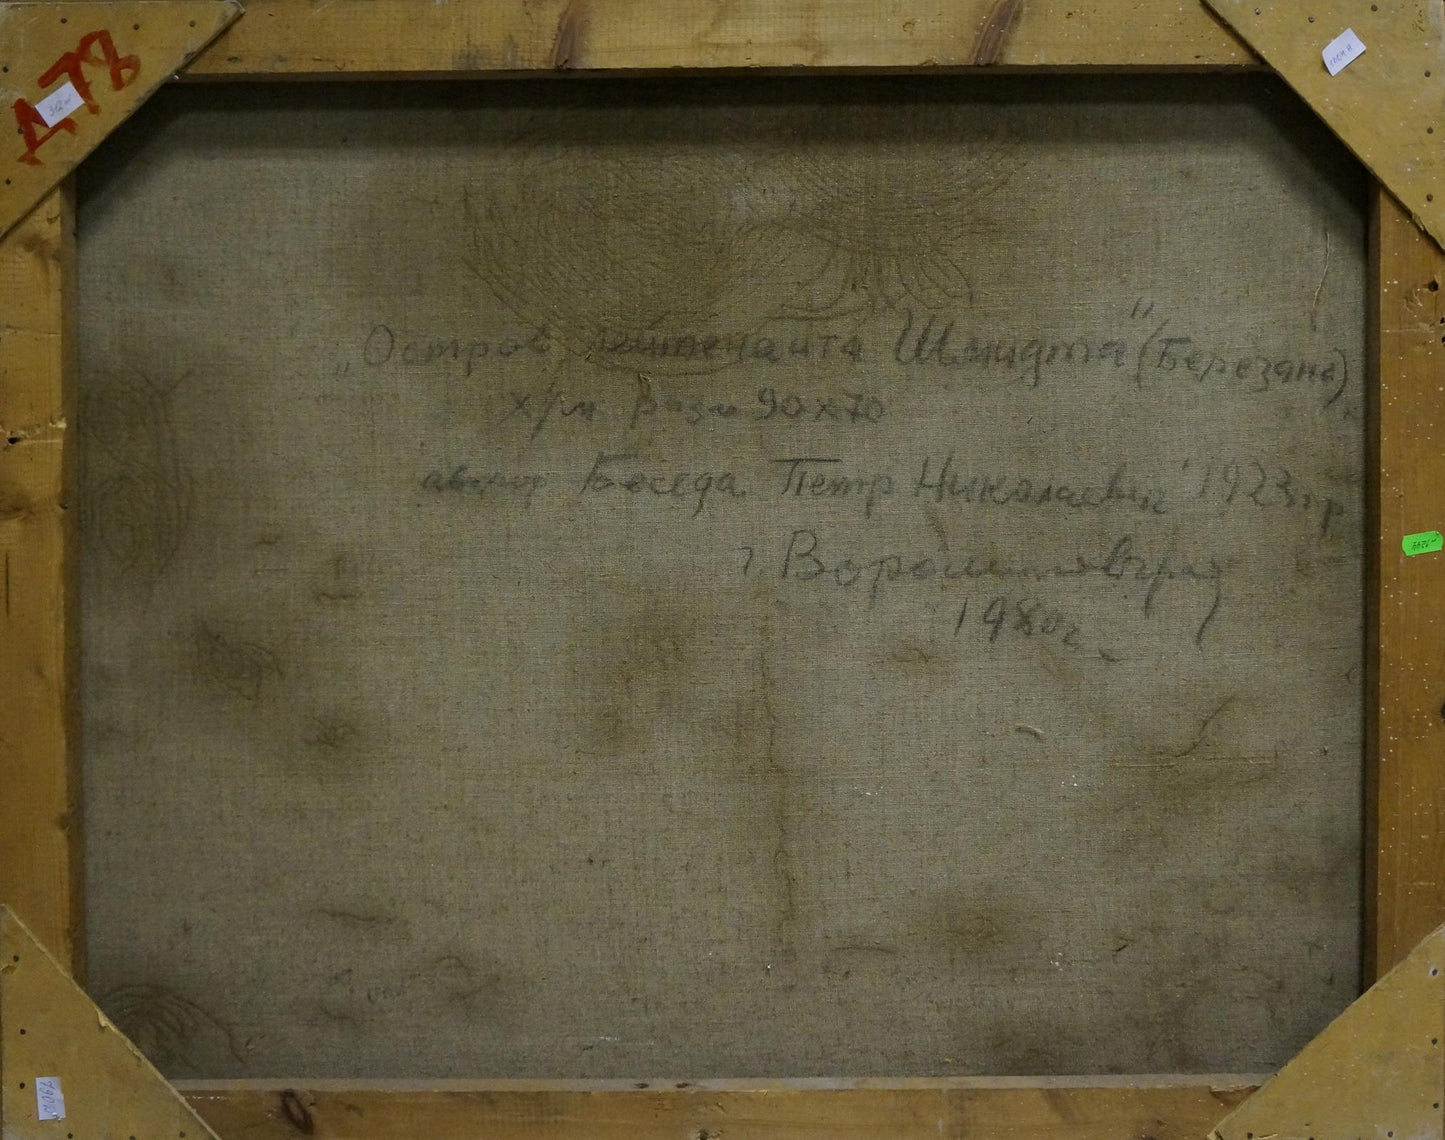 Д78
„Остров лейтенанта Шмидта" (Березань)
х/м разм 90х70
автор Беседа Петр Николаевич 1923гр
г. Ворошиловград
1980г